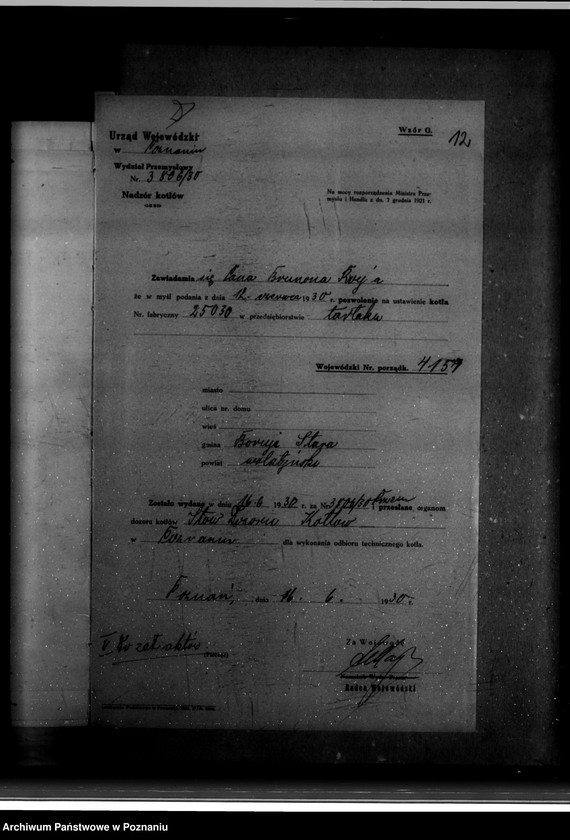 Wzór G.
12
Urząd Wojewódzki
w Poznaniu
Wydział Przemysłowy
Nr. 3896/30
Nadzór kotłów
Na mocy rozporządzenia Ministra Prze-
mysłu i Handlu z dn. 7 grudnia 1921 r.
Zawiadamia się Pana Brunona
że w myśl podania z dnia 12. czerwca 1930 r. pozwolenie na ustawienie kotła
Nr. fabryczny 25030 w przedsiębiorstwie tartaku
Wojewódzki Nr. porządk. 4157
miasto
ulica nr. domu
wieś
gmina Boruja Stara
powiat wolsztyński
Zostało wydane w dniu 16.6 1930 r. za Nr 3896/30 przesłane organom
dozoru kotłów Stow. Dozoru Kotłów
w Poznaniu dla wykonania odbioru technicznego kotła.
Poznań, dnia 16. 6. 1930 r.
Za Wojewodę
Radca Wojewódzki
Archiwum Państwowe w Poznaniu